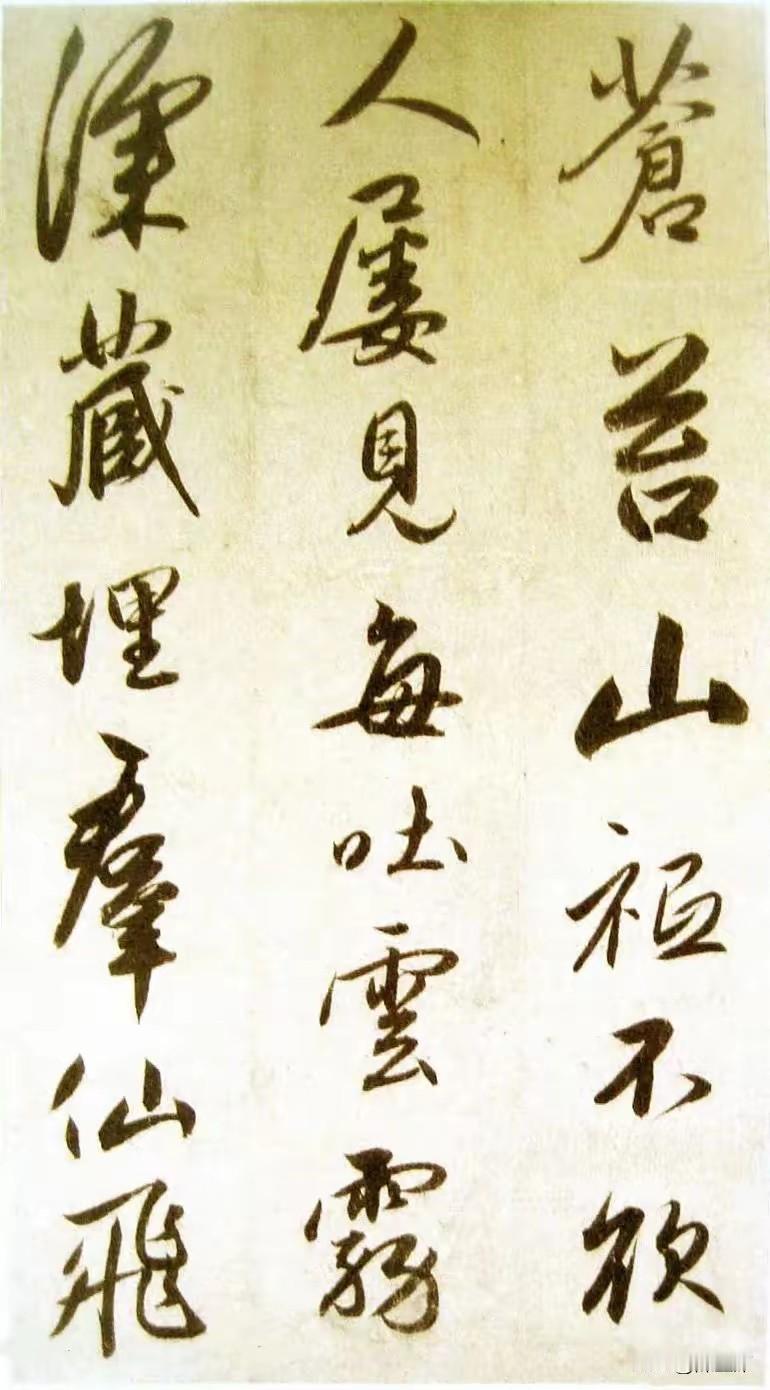 蒼苔山祗不欲
人屢見每吐雲霧
深藏埋羣仙飛